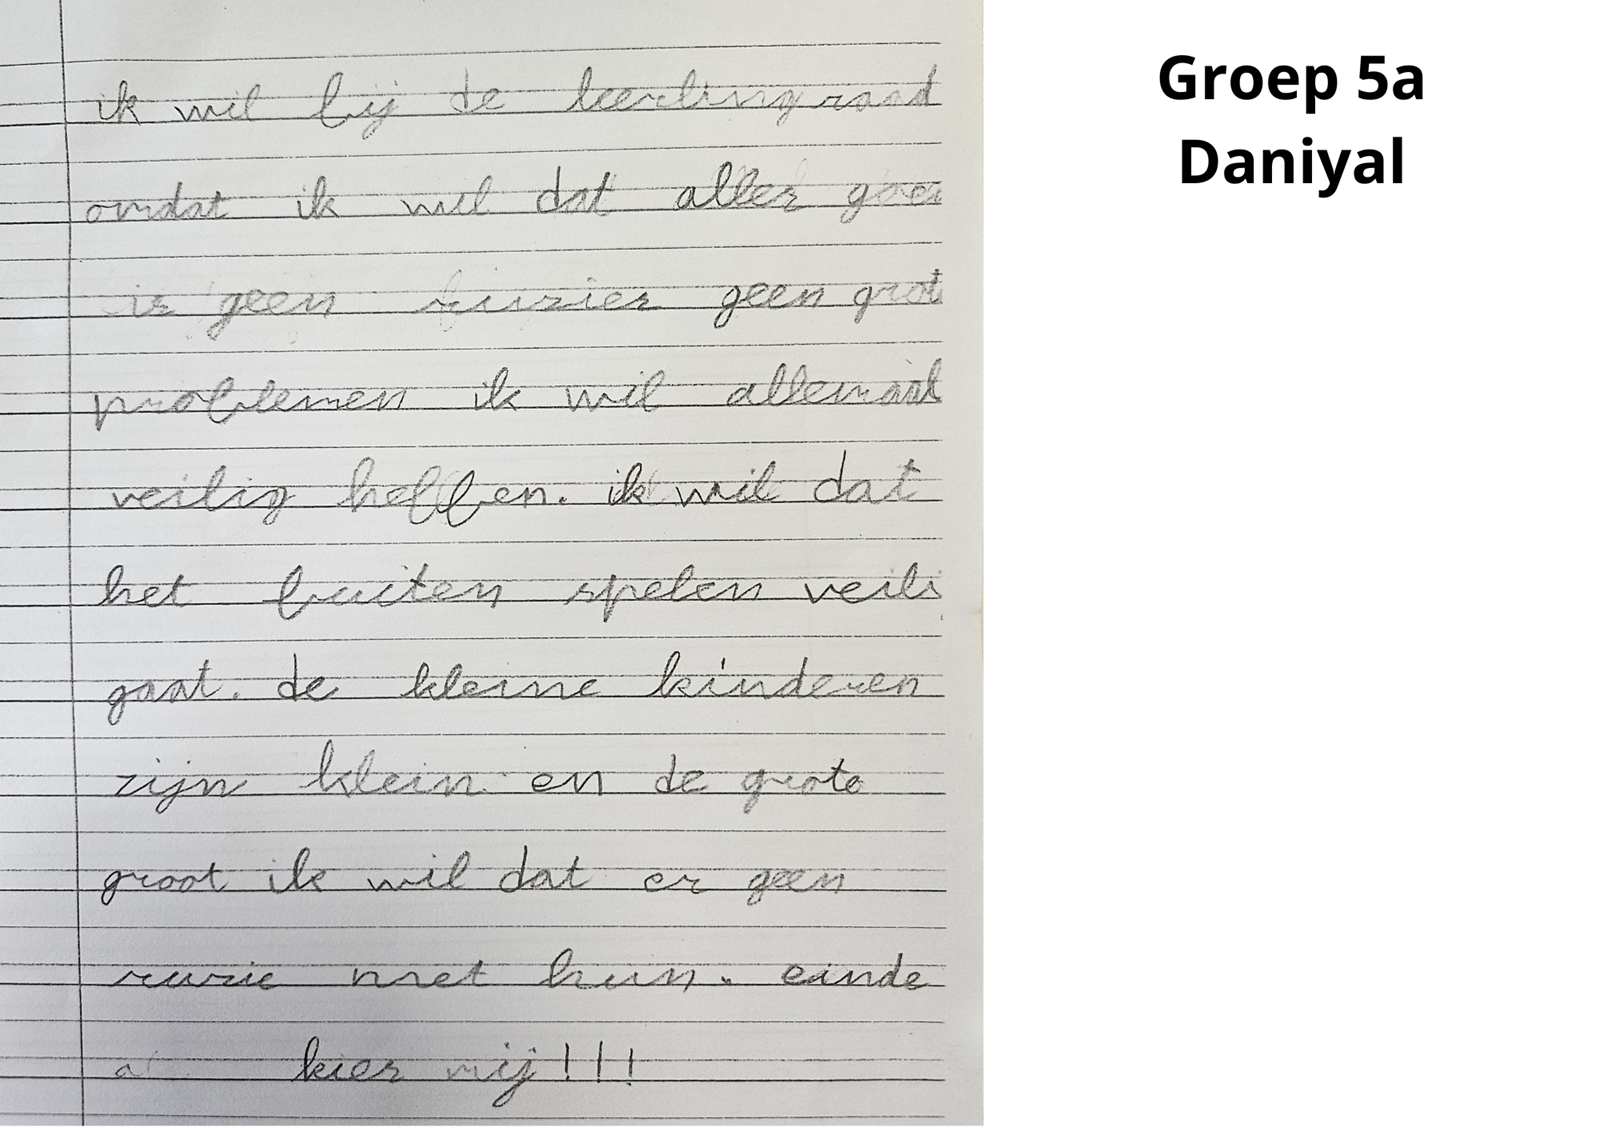 ik wil bij de leerlingraad
omdat ik wil dat alles goed
is geen ruzies geen grote
problemen ik wil allemaal
veilig hebben. ik wil dat
het buiten spelen veili
gaat. de kleine kinderen
zijn klein en de grote
groot ik wil dat er geen
ruzie met hun. einde
kies mij!!!
Groep 5a
Daniyal